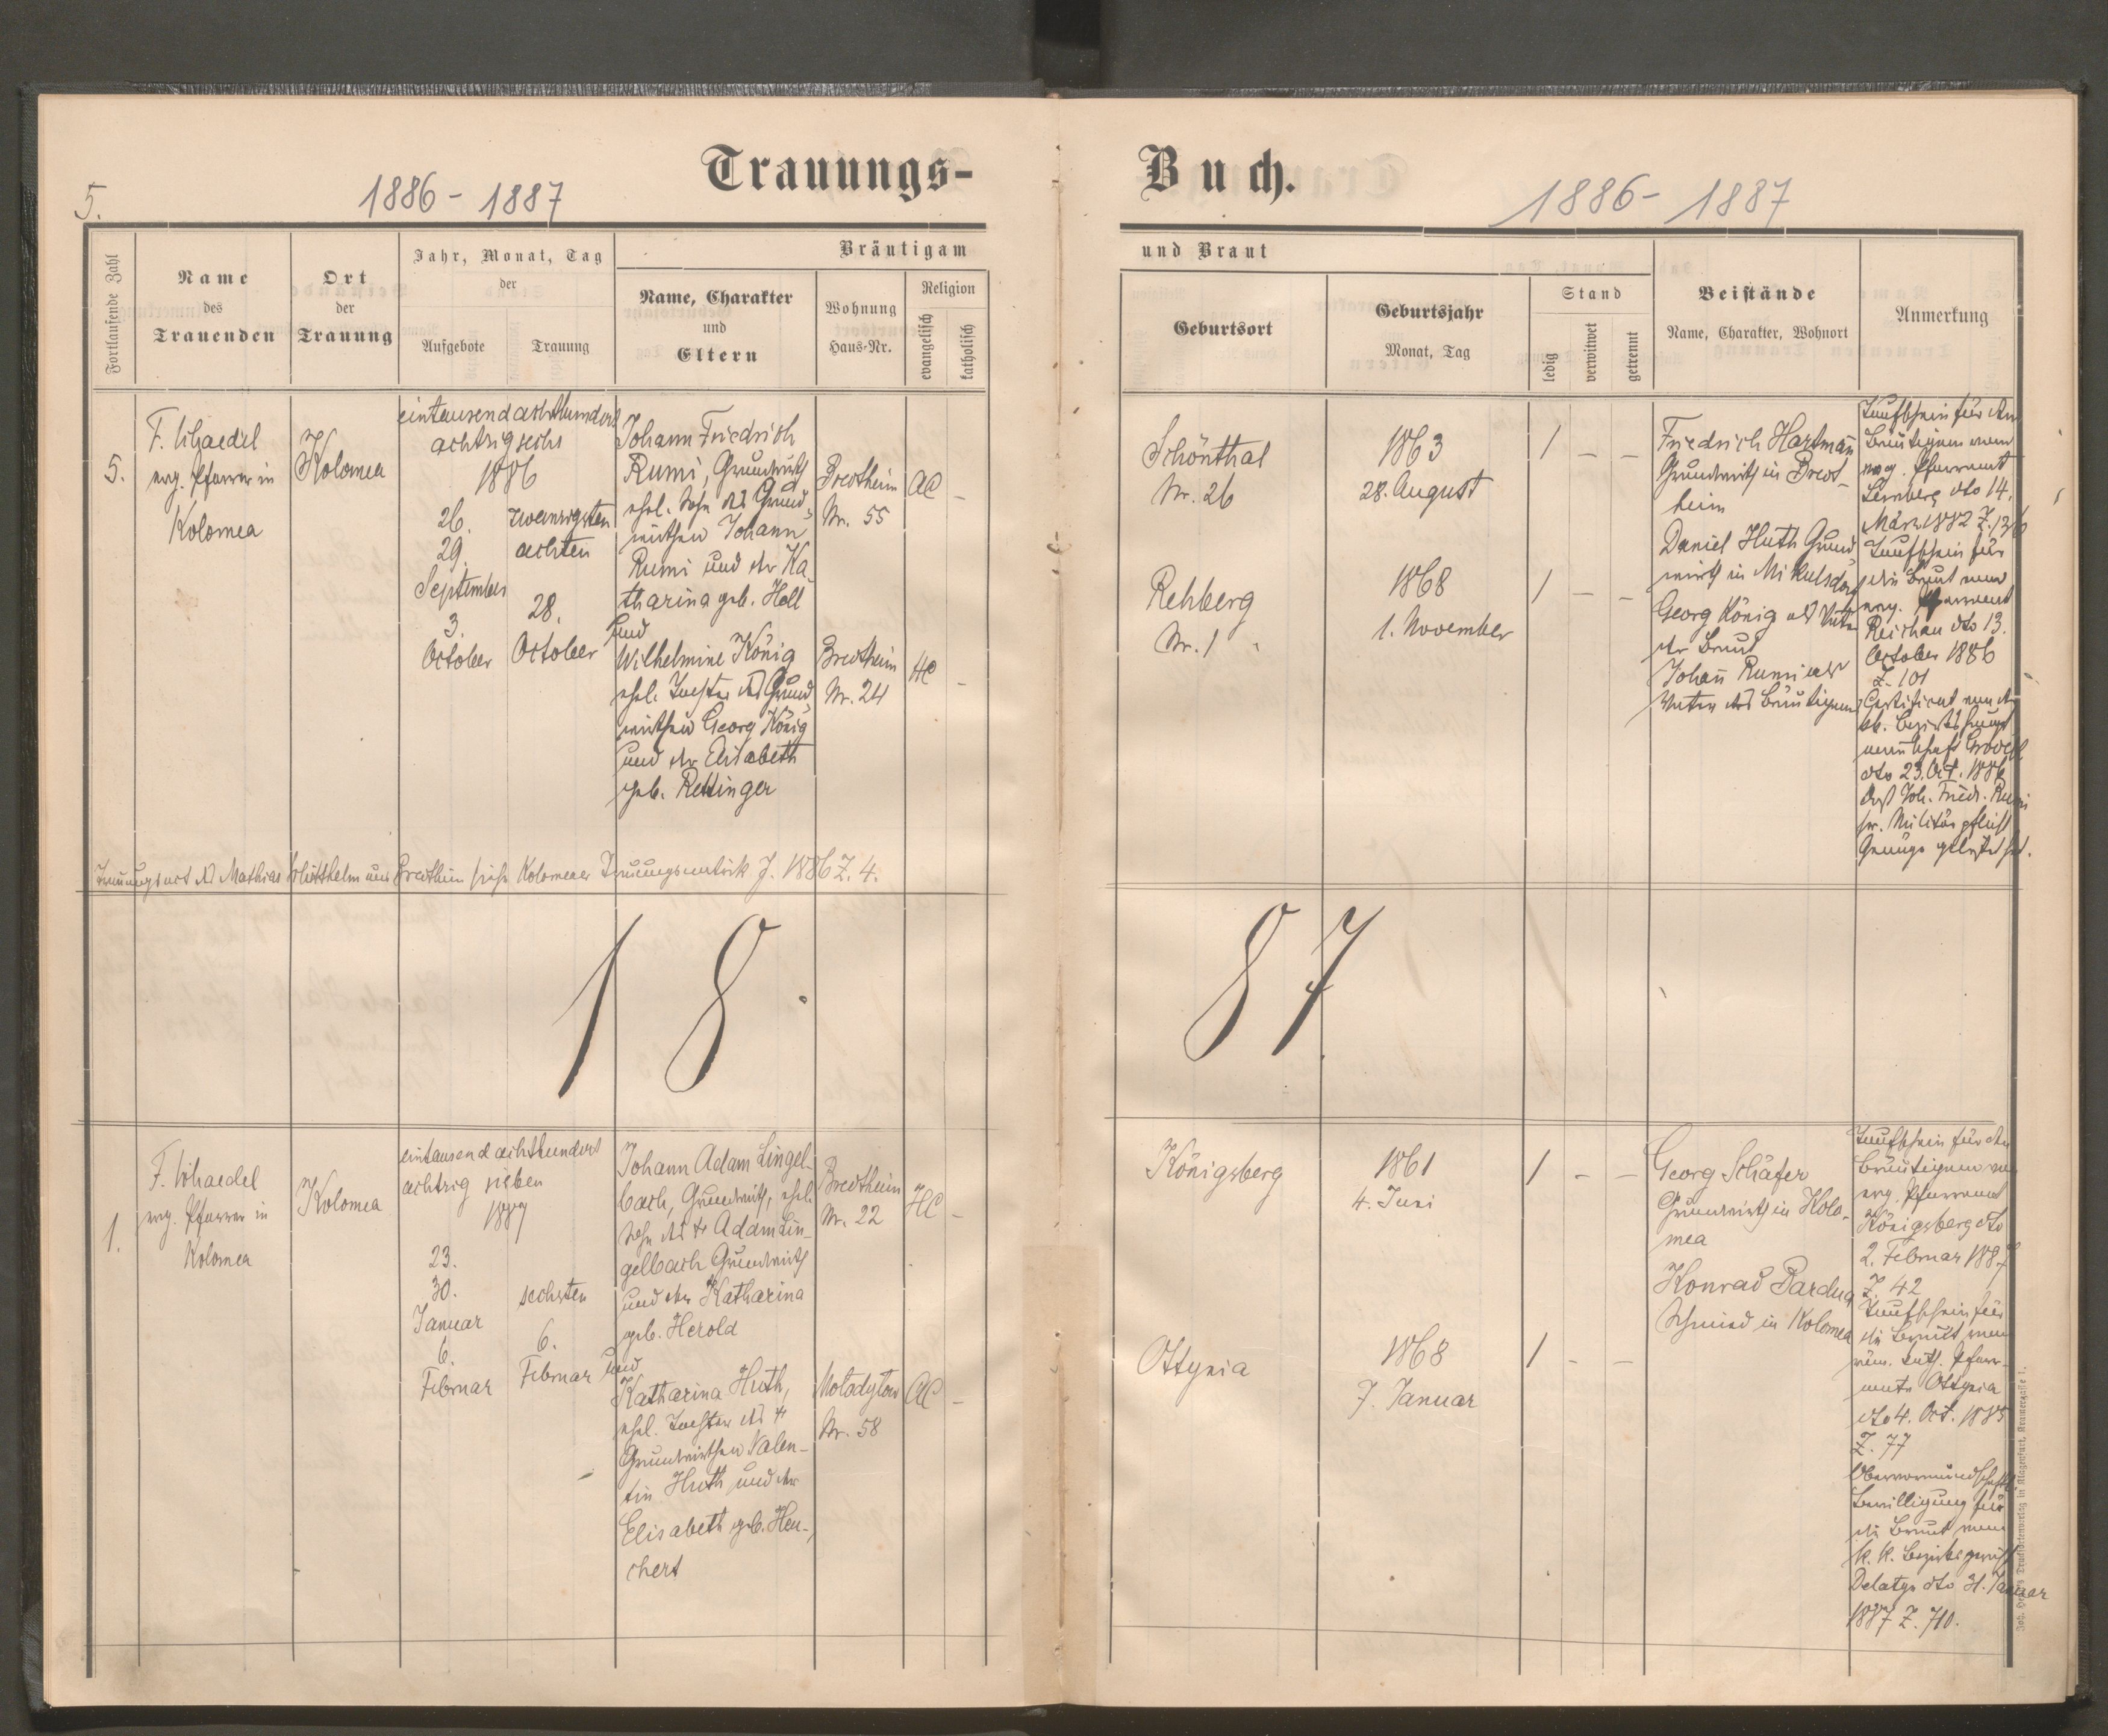 Trauungs-
Buch.
5.
1886 - 1887
1886 - 1887
Fortlaufende Zahl
Name
des
Trauenden
Ort
der
Trauung
Jahr, Monat, Tag
der
Aufgebote
Trauung
Bräutigam
Name, Charakter
und
Eltern
Wohnung
Haus-Nr.
Religion
evangelisch
katholisch
und Braut
Geburtsort
Geburtsjahr
Monat, Tag
Stand
ledig
verwitwet
getrennt
Beistände
Name, Charakter, Wohnort
Anmerkung
5.
evg. Pfarrer in
Kolomea
Kolomea
eintausendachthundert
achtzigsechs
1886
26.
29.
September
3.
October
zwanzigsten
achten
28.
October
Johann Friedrich
Rumi, Grundwirth
ehel. Sohn des Grund-
wirthen Johann
Rumi und der Ka-
tharina geb. Holl
und
Wilhelmine König
ehel. Tochter des Grund-
wirthen Georg König
und der Elisabeth
geb. Rettinger
Bredtheim
Nr. 55
Bredtheim
Nr. 24
AC -
HC -
Schönthal
Nr. 26
Rehberg
Nr. 1
1863
28. August
1868
1. November
/ - -
/ - -
Friedrich Hartmañ
Grundwirth in Bredt-
heim
Daniel Huth Grund-
wirth in Mikulsdorf
Georg König als Vater
der Braut
Johañ Rumi als
Vater des Bräutigams
Taufschein für den
Bräutigam vom
evg. Pfarramt
Lemberg dto 14.
März 1882 Z.
Taufschein für
die Braut vom
evg. Pfarramt
Reichau dto 13.
October 1886
Z. 101
Certificat von der
kk. Bezirkshaupt
mannschaft
dto 23. Oct. 1886
daß Joh. Friedr. Rumi
sr. Militärpflicht
Genüge geleistet hat.
Trauungsact des Mathias aus Bredtheim siehe Kolomeaer Trauungsmatrik J. 1886 Z. 4.
18
87
1.
evg. Pfarrer in
Kolomea
Kolomea
eintausend achthundert
achtzig sieben
1887
23.
30.
Januar
6.
Februar
sechsten
6.
Februar
Johann Adam Lingel-
bach, Grundwirth, ehel.
Sohn des † Adam Lin-
gelbach Grundwirth
und der Katharina
geb. Herold
und
Katharina Huth,
ehel. Tochter des †
Grundwirthen Valen-
tin Huth und der
Elisabeth geb. Heu-
chert
Bredtheim
Nr. 22
Molodylow
Nr. 58
HC -
AC -
Königsberg
Ottynia
1861
4. Juni
1868
7. Januar
/ - -
/ - -
Georg Schäfer
Grundwirth in Kolo-
mea
Konrad
Schmied in Kolomea
Taufschein für den
Bräutigam vom
evg. Pfarramt
Königsberg dto
2. Februar 1887
Z. 42
Taufschein für
die Braut vom
röm. kath. Pfarr-
amte Ottynia
dto 4. Oct. 1885
Z. 77
Obervormundschaftl.
Bewilligung für
die Braut vom
k. k. Bezirksgericht
Delatyn dto 31. Januar
1887 Z. 710.